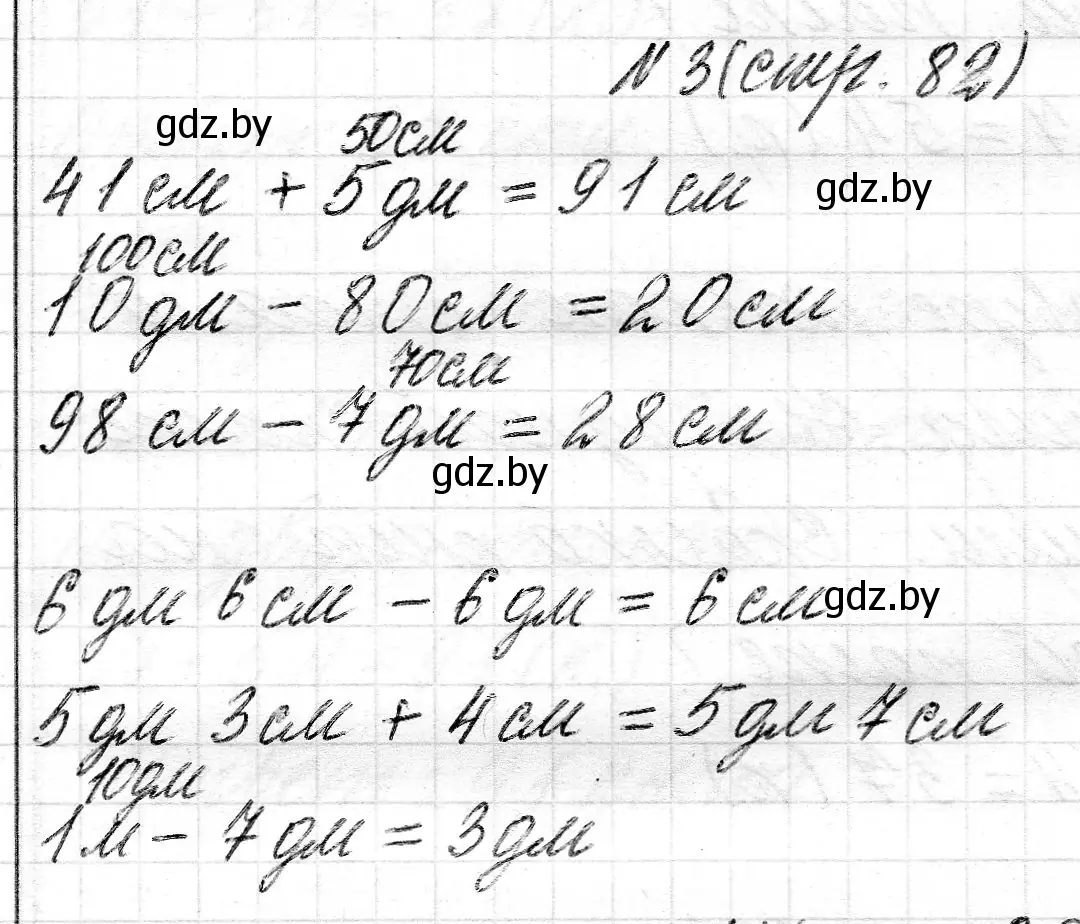 № 3 (стр. 82)
gdz.by
50см
41 см + 5 дм = 91 см
gdz.by
100см
10 дм - 80 см = 20 см
70см
98 см - 7 дм = 28 см
gdz.by
6 дм 6 см - 6 дм = 6 см
gdz.by
5 дм 3 см + 4 см = 5 дм 7 см
10дм
1 м - 7 дм = 3 дм